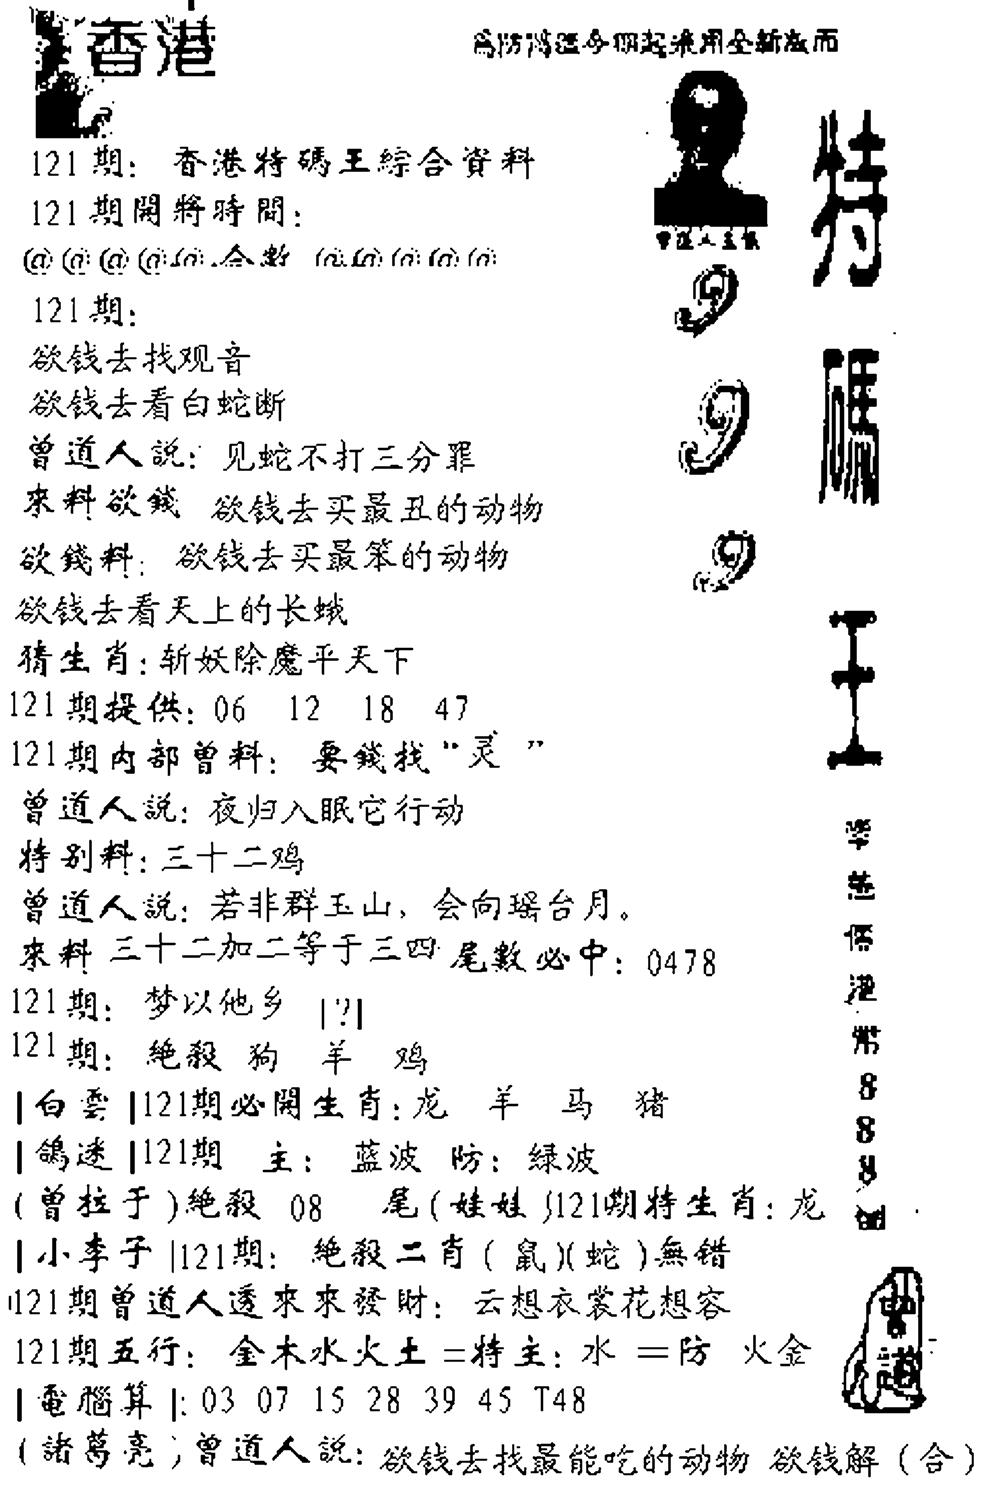 香港
特碼王
121期：香港特碼王綜合資料
121期開將時間：
121期：
欲钱去找观音
欲钱去看白蛇断
曾道人説：见蛇不打三分罪
來料欲錢 欲钱去买最丑的动物
欲錢料：欲钱去买最笨的动物
欲钱去看天上的长蛾
猜生肖：斩妖除魔平天下
121期提供：06 12 18 47
121期内部曾料：要錢找“灵”
曾道人説：夜归入眠它行动
特别料：三十二鸡
曾道人説：若非群玉山，会向瑶台月。
來料 三十二加二等于三四 尾數必中：0478
121期：梦以他乡 |?|
121期：絶殺 狗 羊 鸡
|白雲|121期必開生肖：龙 羊 马 猪
|鴿迷|121期 主：蓝波 防：绿波
(曾拉于)絶殺 08 尾(娃娃)121期特生肖：龙
|小李子|121期：絶殺二肖(鼠)(蛇)無错
121期曾道人透來來發財：云想衣裳花想容
121期五行：金木水火土=特主：水=防 火金
|電腦算|:03 07 15 28 39 45 T48
(諸葛亮)曾道人説：欲钱去找最能吃的动物 欲钱解(合)